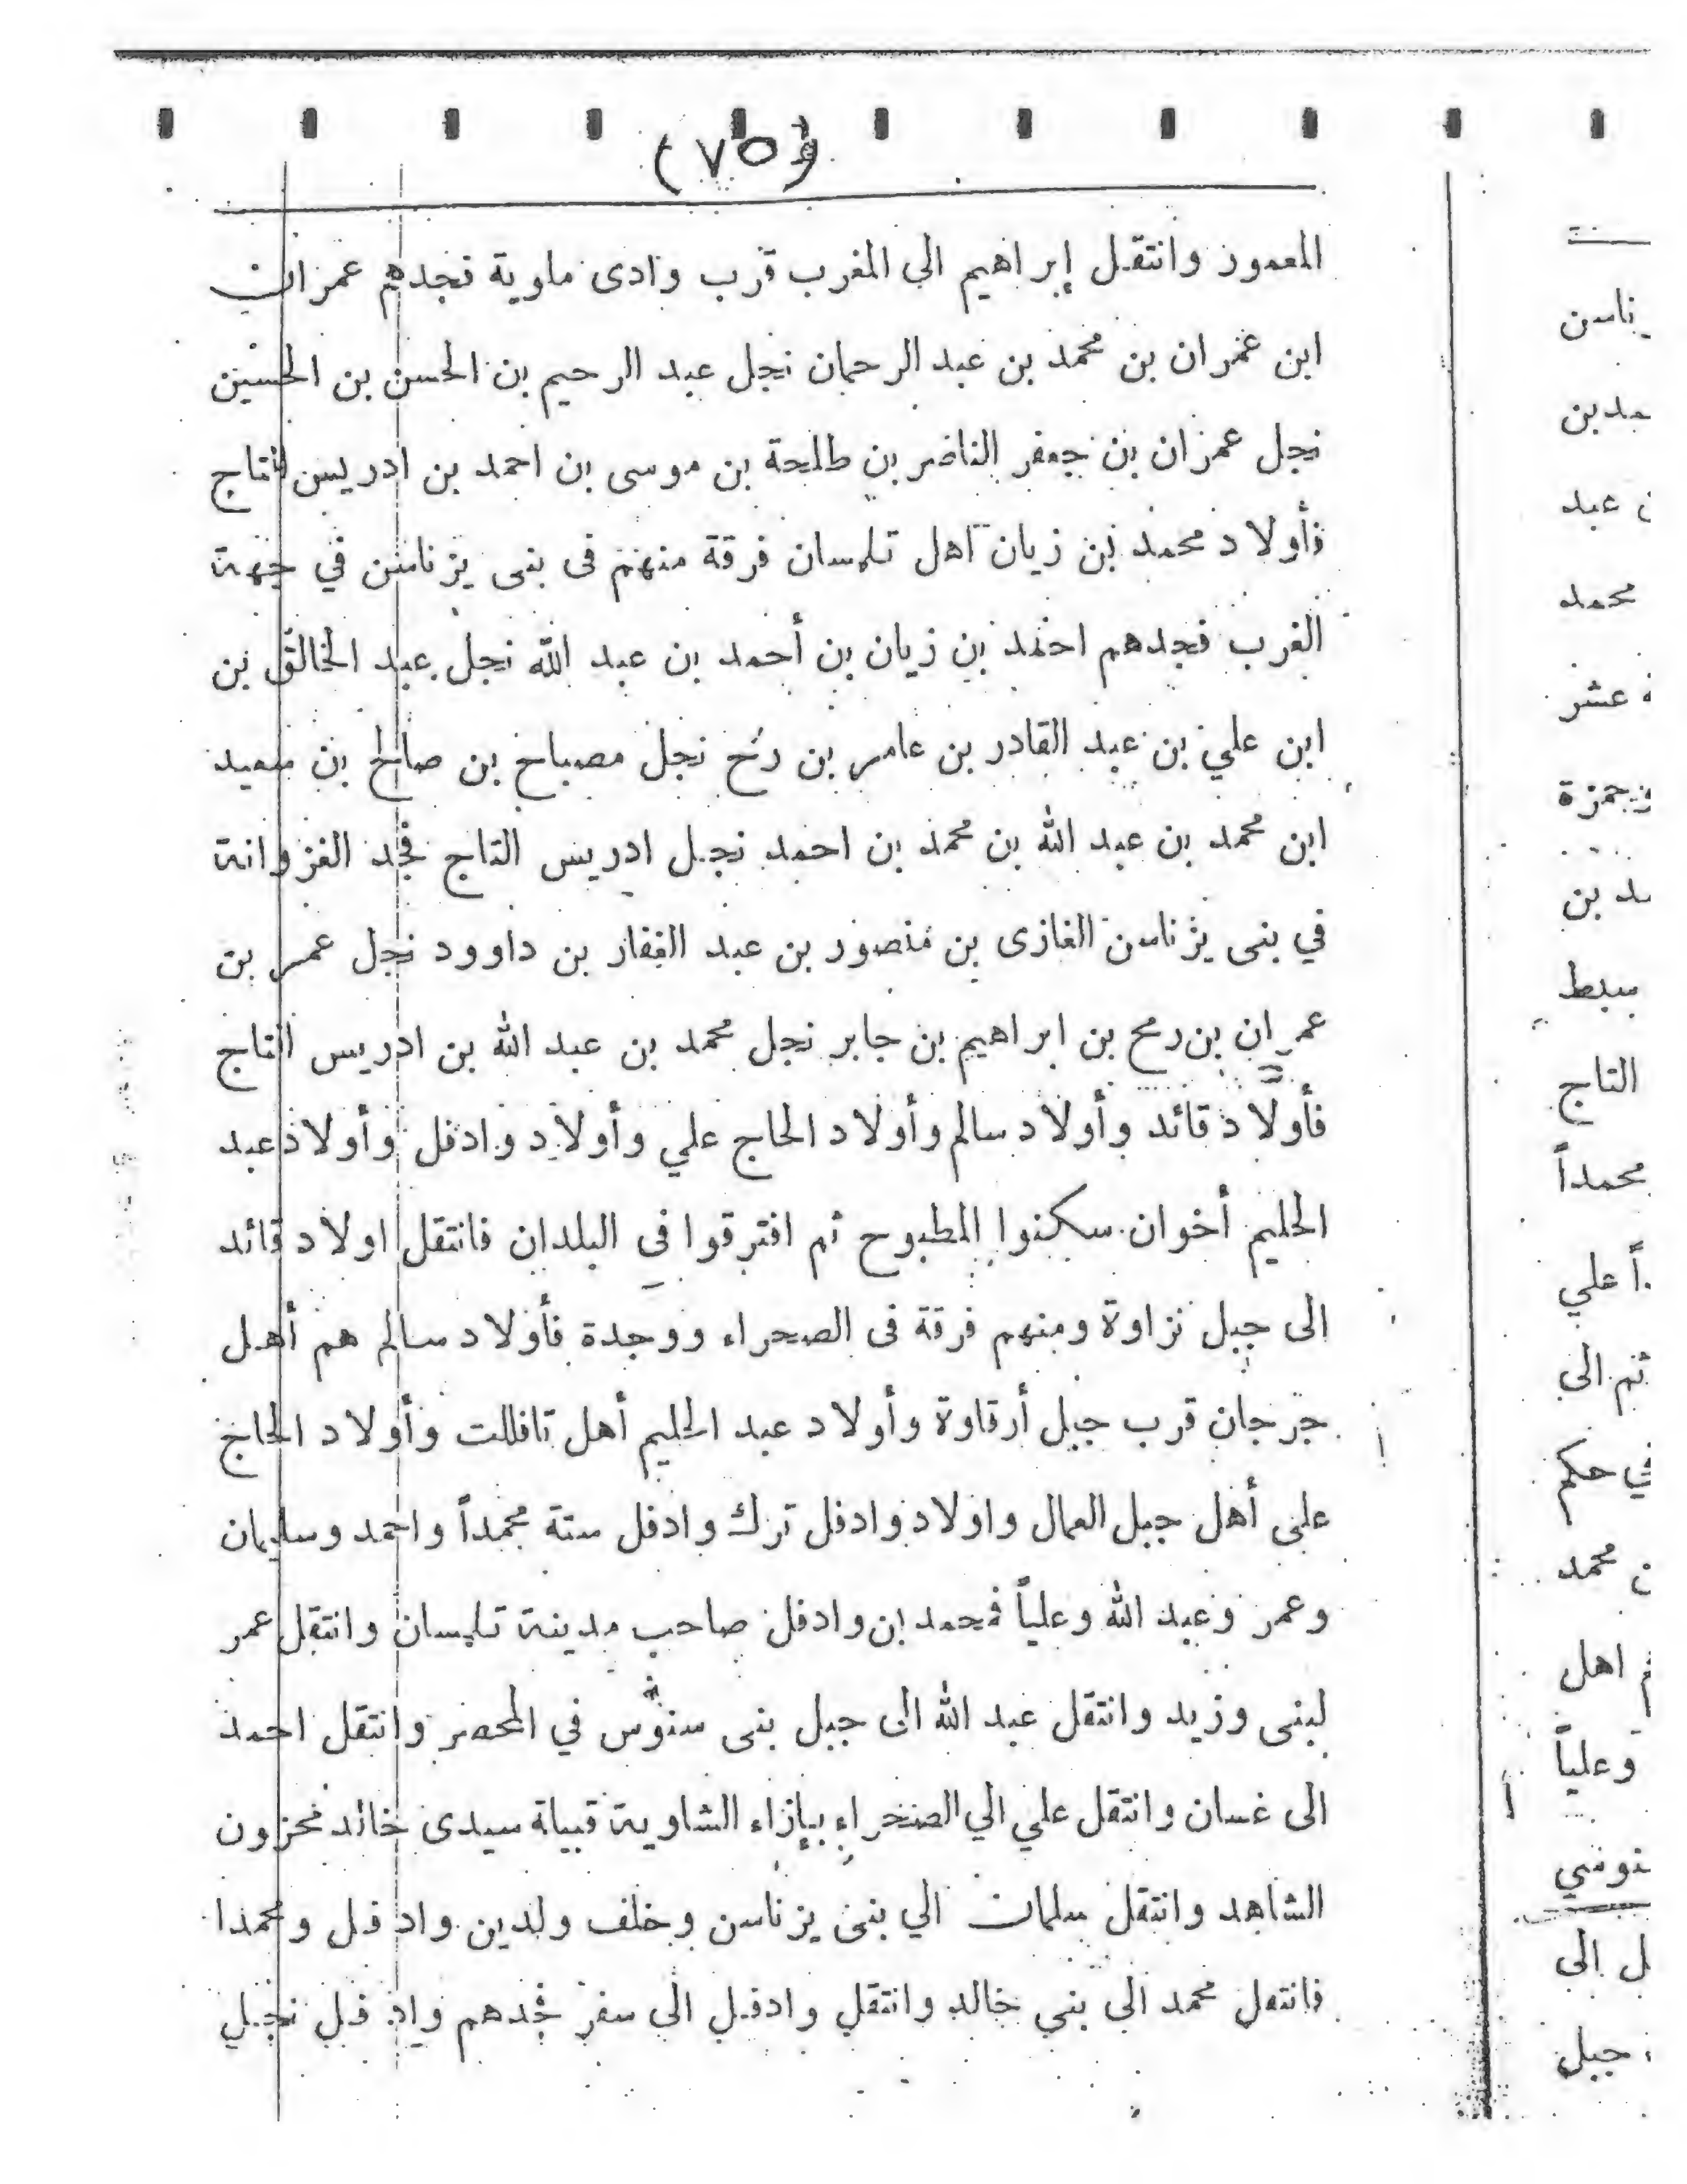 (٧٥)
المعموز وانتقل إبراهيم الى المغرب قرب وادى ملوية فجدهم عمران
ابن عمران بن محمد بن عبد الرحمان نجل عبد الرحيم بن الحسن بن الحسين
نجل عمران بن جعفر الناصر بن طلحة بن موسى بن احمد بن ادريس التاج
فأولاد محمد بن زيان أهل تلمسان فرقة منهم فى بنى يزناسن في جهة
الغرب فجدهم احمد بن زيان بن أحمد بن عبد الله نجل عبد الخالق بن
ابن علي بن عبد القادر بن عامر بن رمح نجل مصباح بن صالح بن سعيد
ابن محمد بن عبد الله بن محمد بن احمد نجل ادريس التاج فجد الغزوانة
في بنى يزناسن الغازى بن منصور بن عبد الغفار بن داوود نجل عمر بن
عمران بن رمح بن ابراهيم بن جابر نجل محمد بن عبد الله بن ادريس التاج
فأولاد قائد وأولاد سالم وأولاد الحاج علي وأولاد وادفل وأولاد عبد
الحليم أخوان سكنوا المطبوح ثم افترقوا فى البلدان فانتقل اولاد قائد
الى جبل نزاوة ومنهم فرقة فى الصحراء ووجدة فأولاد سالم هم أهل
جرجان قرب جبل أرقاوة وأولاد عبد الحليم أهل تافللت وأولاد الحاج
على أهل جبل العمال واولاد وادفل ترك وادفل ستة محمداً واحمد وسليمان
وعمر وعبد الله وعلياً فمحمد بن وادفل صاحب مدينة تلمسان وانتقل عمر
لبنى وزيد وانتقل عبد الله الى جبل بنى سنوس في المحصر وانتقل احمد
الى غسان وانتقل علي الي الصحراء بإزاء الشاوية قبيلة سيدى خالد محزون
الشاهد وانتقل سلمان الي بنى يزناسن وخلف ولدين وادفل ومحمدا
فانتقل محمد الى بني خالد وانتقل وادفل الى سفر فجدهم وادفل نجل
ناسن
مد بن
عبد
محمد
عشر
حمزة
د بن
سبط
التاج
محمداً
علي
ثم الى
في حكم
محمد
اهل
وعلياً
نوسي
ل الى
جبل